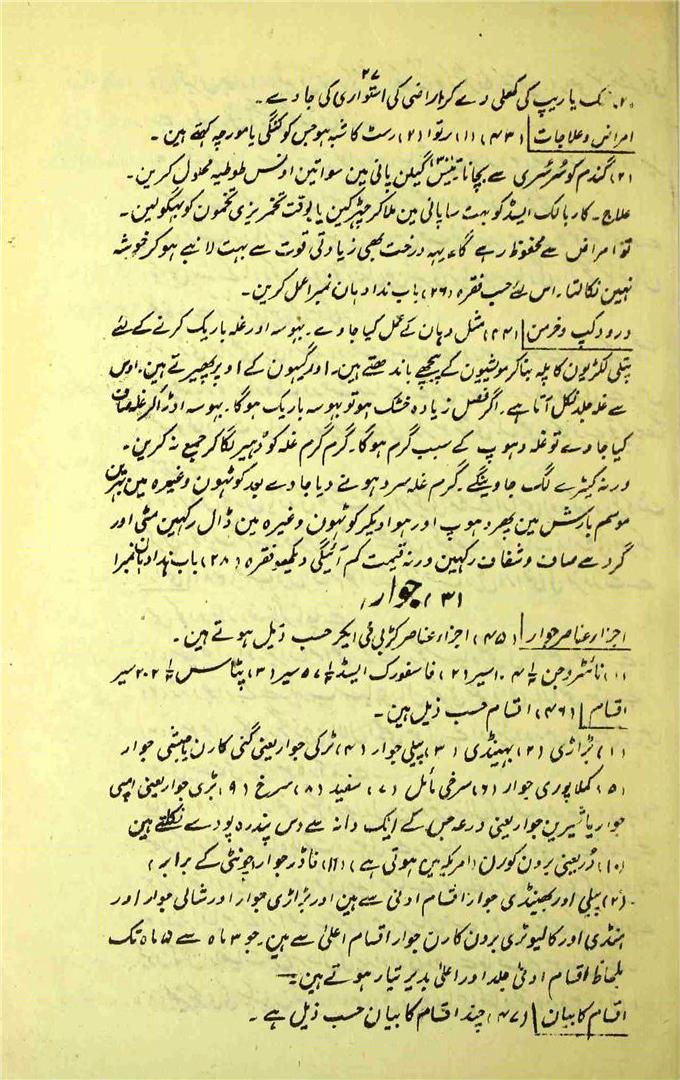 ۲۷
نمک یا ریپ کی کھلی دے کر اراضی کی استواری کی جاوے ۔
امراض وعلاجات (۴۳) (۱) رتوا (۲) رسٹ کاشبہ ہو جس کو کنگی یا مورچہ کہتے ہین ۔
(۲) گندم کو سُرسُری سے بچانا تیئیس گیلن پانی مین سوا تین اونس طوطیہ محلول کرین ۔
علاج ۔ کاربالک ایسڈ کو بہت سا پانی مین ملا کر چھڑکین یا بوقت تخمریزی تخمون کو بہگولین ۔
تو امراض سے محفوظ رہے گا ، یہہ درخت بھی زیادتی قوت سے بہت لانبے ہو کر خوشہ
نہین نکالتا ۔ اس لئے حسب فقرہ (۲۶) باب ندا دہان نمبر۱ عمل کرین ۔
درودکپ وخرمن (۴۴) مثل دہان کے عمل کیا جاوے ۔ بہوسہ اور غلہ باریک کرنے کے لئے
پتلی لکڑیون کا پلہ بنا کر موشیون کے پیچھے باندھتے ہین ۔ اور گیہون کے اوپر پھیرتے ہین ۔ اوس
سے غلہ جلد نکل آتا ہے ۔ اگر فصل زیادہ خشک ہو تو بہوسہ باریک ہوگا ۔ بہوسہ اڑا کر غلہ صاف
کیا جاوے تو غلہ دہوپ کے سبب گرم ہوگا ۔ گرم گرم غلہ کو ڈہیر لگا کر جمع نہ کرین ۔
ورنہ کیڑے لگ جاوینگے ۔ گرم غلہ سرد ہونے دیا جاوے بعد کوٹہون وغیرہ مین بھرین
موسم بارش مین پھر دہوپ اور ہوا دیکر کوٹہون وغیرہ مین ڈال رکہین مٹی اور
گرد سے صاف وشفاف رکہین ورنہ قیمت کم آئیگی دیکھو فقرہ (۲۸) باب ندا دہان نمبر۱
(۳) جوار
اجزاء عناصر جوار (۴۵) اجزاء عناصر کڑبی فی ایکر حسب ذیل ہوتے ہین ۔
(۱) نائٹروجن ۱۰۴½ سیر (۲) فاسفورک ایسڈ ۵۷½ سیر (۳) پٹاسس ۲۰۲½ سیر
اقسام (۴۶) اقسام حسب ذیل ہین ۔
(۱) بڑاڑی (۲) بھینڈی (۳) پیلی جوار (۴) ٹرکی جوار یعنی گنی کارن یا حبشی جوار
(۵) کملاپوری جوار (۶) سرخی مائل (۷) سفید (۸) سرخ (۹) بڑی جوار یعنی امپی
جوار یا شیرین جوار یعنی درعہ جس کے ایک دانہ سے دس پندرہ پودے نکلتے ہین
(۱۰) دُر یعنی برون کورن (امریکہ مین ہوتی ہے) (۱۱) ناڈر جوار (جونٹی کے برابر)
(۲) پیلی اور بھینڈی جوار اقسام ادنیٰ سے ہین اور بڑاڑی جوار اور شالی جوار اور
ھنڈی اور کالیوٹری برون کارن جوار اقسام اعلیٰ سے ہین ۔ جو ۳ ماہ سے ۵ ماہ تک
بلحاظ اقسام ادنیٰ جلد اور اعلیٰ بدیر تیار ہوتے ہین ۔
اقسام کا بیان (۴۷) چند اقسام کا بیان حسب ذیل ہے ۔